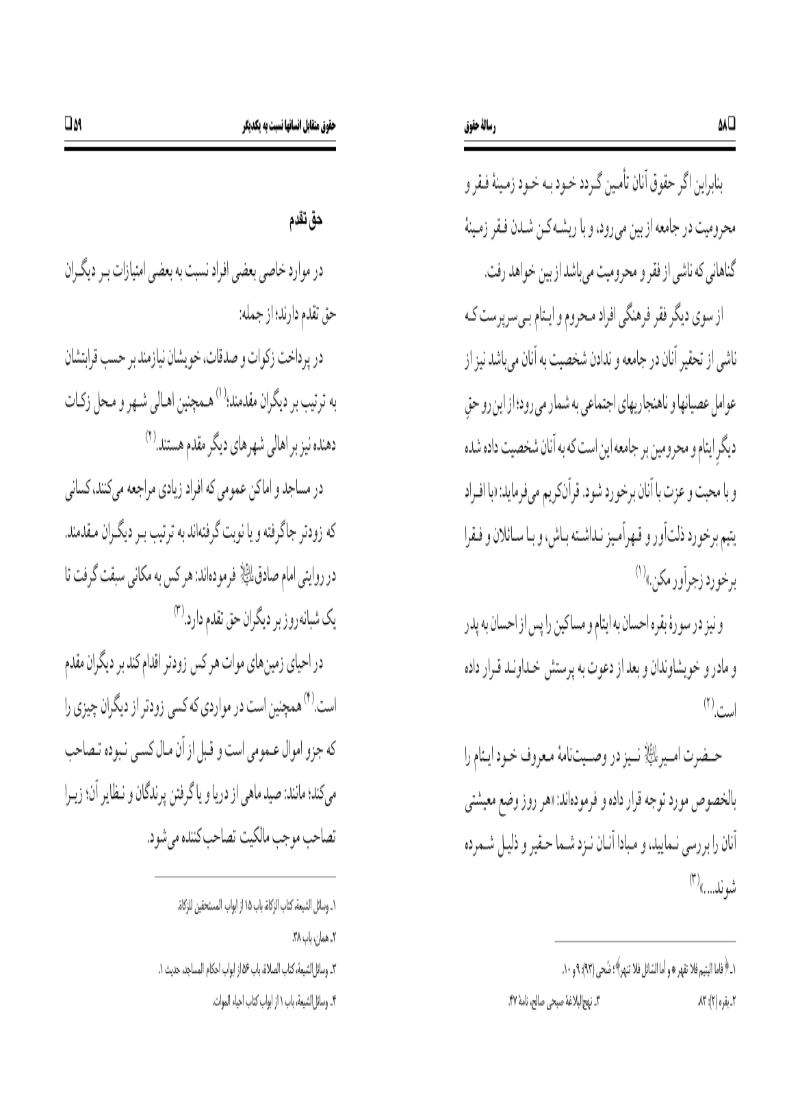 ❑ ۵۸ رسالهٔ حقوق
بنابراین اگر حقوق آنان تأمین گردد خود به خود زمینهٔ فقر و
محرومیت در جامعه از بین می‌رود، و با ریشه‌کن شدن فقر زمینهٔ
گناهانی که ناشی از فقر و محرومیت می‌باشد از بین خواهد رفت.
از سوی دیگر فقر فرهنگی افراد محروم و ایتام بی‌سرپرست که
ناشی از تحقیر آنان در جامعه و ندادن شخصیت به آنان می‌باشد نیز از
عوامل عصیانها و ناهنجاریهای اجتماعی به شمار می‌رود؛ از این رو حقِ
دیگرِ ایتام و محرومین بر جامعه این است که به آنان شخصیت داده شده
و با محبت و عزت با آنان برخورد شود. قرآن‌کریم می‌فرماید: «با افراد
یتیم برخورد ذلت‌آور و قهرآمیز نداشته باش، و با سائلان و فقرا
برخورد زجرآور مکن.»(۱)
و نیز در سورهٔ بقره احسان به ایتام و مساکین را پس از احسان به پدر
و مادر و خویشاوندان و بعد از دعوت به پرستش خداوند قرار داده
است.(۲)
حضرت امیر علیه‌السلام نیز در وصیت‌نامهٔ معروف خود ایتام را
بالخصوص مورد توجه قرار داده و فرموده‌اند: «هر روز وضع معیشتی
آنان را بررسی نمایید، و مبادا آنان نزد شما حقیر و ذلیل شمرده
شوند....»(۳)
۱ـ ﴿فاما الیتیم فلا تقهر * و أما السّائل فلا تنهر﴾؛ ضُحی (۹۳): ۹ و ۱۰.
۲ـ بقره (۲): ۸۳. ۳ـ نهج‌البلاغهٔ صبحی صالح، نامهٔ ۴۷.
حقوق متقابل انسانها نسبت به یکدیگر ۵۹ ❑
حق تقدم
در موارد خاصی بعضی افراد نسبت به بعضی امتیازات بر دیگران
حق تقدم دارند؛ از جمله:
در پرداخت زکوات و صدقات، خویشان نیازمند بر حسب قرابتشان
به ترتیب بر دیگران مقدمند؛(۱) همچنین اهالی شهر و محل زکات
دهنده نیز بر اهالی شهرهای دیگر مقدم هستند.(۲)
در مساجد و اماکن عمومی که افراد زیادی مراجعه می‌کنند، کسانی
که زودتر جا گرفته و یا نوبت گرفته‌اند به ترتیب بر دیگران مقدمند.
در روایتی امام صادق علیه‌السلام فرموده‌اند: هر کس به مکانی سبقت گرفت تا
یک شبانه‌روز بر دیگران حق تقدم دارد.(۳)
در احیای زمین‌های موات هر کس زودتر اقدام کند بر دیگران مقدم
است.(۴) همچنین است در مواردی که کسی زودتر از دیگران چیزی را
که جزو اموال عمومی است و قبل از آن مال کسی نبوده تصاحب
می‌کند؛ مانند: صید ماهی از دریا و یا گرفتن پرندگان و نظایر آن؛ زیرا
تصاحب موجب مالکیت تصاحب‌کننده می‌شود.
۱ـ وسائل الشیعة، کتاب الزکاة، باب ۱۵ از ابواب المستحقین للزکاة.
۲ـ همان، باب ۳۸.
۳ـ وسائل‌الشیعة، کتاب الصلاة، باب ۵۶ از ابواب احکام المساجد، حدیث ۱.
۴ـ وسائل‌الشیعة، باب ۱ از ابواب کتاب احیاء الموات.